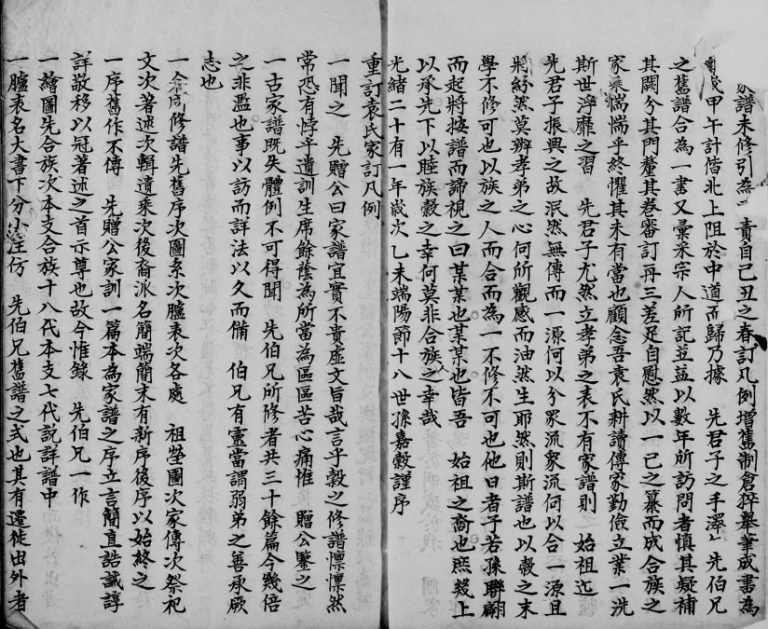 譜未修引為己責自己丑之春訂凡例增舊制倉猝舉筆成書為
甲午計偕北上阻於中道而歸乃據 先君子之手澤 先伯兄
之舊譜合為一書又彙采宗人所記豆益以數年所訪問者慎其疑補
其闕分其門釐其卷審訂再三差足自慰然以一己之纂而成合族之
家乘惴惴乎終懼其未有當也顧念吾袁氏耕讀傳家勤儉立業一洗
斯世浮靡之習 先君子尤然立孝弟之表不有家譜則 始祖迄
先君子振興之故泯然無傳而一源何以分眾流眾流何以合一源且
將紛然莫辦孝弟之心何所觀感而油然生耶然則斯譜也以穀之末
學不修可也以族之人而合而為一不修不可也他日者子若孫聯翩
而起將按譜而諦視之曰某某也某某也皆吾 始祖之裔也庶幾上
以承先下以睦族穀之幸何莫非合族之幸哉
光緒二十有一年歲次乙未端陽節十八世孫嘉穀謹序
重訂袁氏家訂凡例
一聞之 先贈公曰家譜宜實不貴虛文旨哉言乎穀之修譜懍懍然
常恐有悖乎遺訓生席餘蔭為所當為區區苦心痛惟 贈公鑒之
一古家譜既失體例不可得聞 先伯兄所修者共三十餘篇今幾倍
之非濫也事以訪而詳法以久而備 伯兄有靈當謂弱弟之善承厥
志也
一今修譜先舊序次圖系次臚表次各處 祖塋圖次家傳次祭祀
文次著述次輯遺乘次後裔派名簡端簡末有新序後序以始終之
一序舊作不傳 先贈公家訓一篇本為家譜之序立言簡直誥誡諄
詳敬移以冠著述之首示尊也故今惟錄 先伯兄一作
一繪圖先合族次本支合族十八代本支七代說詳譜中
一臚表名大書下分小注仿 先伯兄舊譜之式也其有遷徙出外者